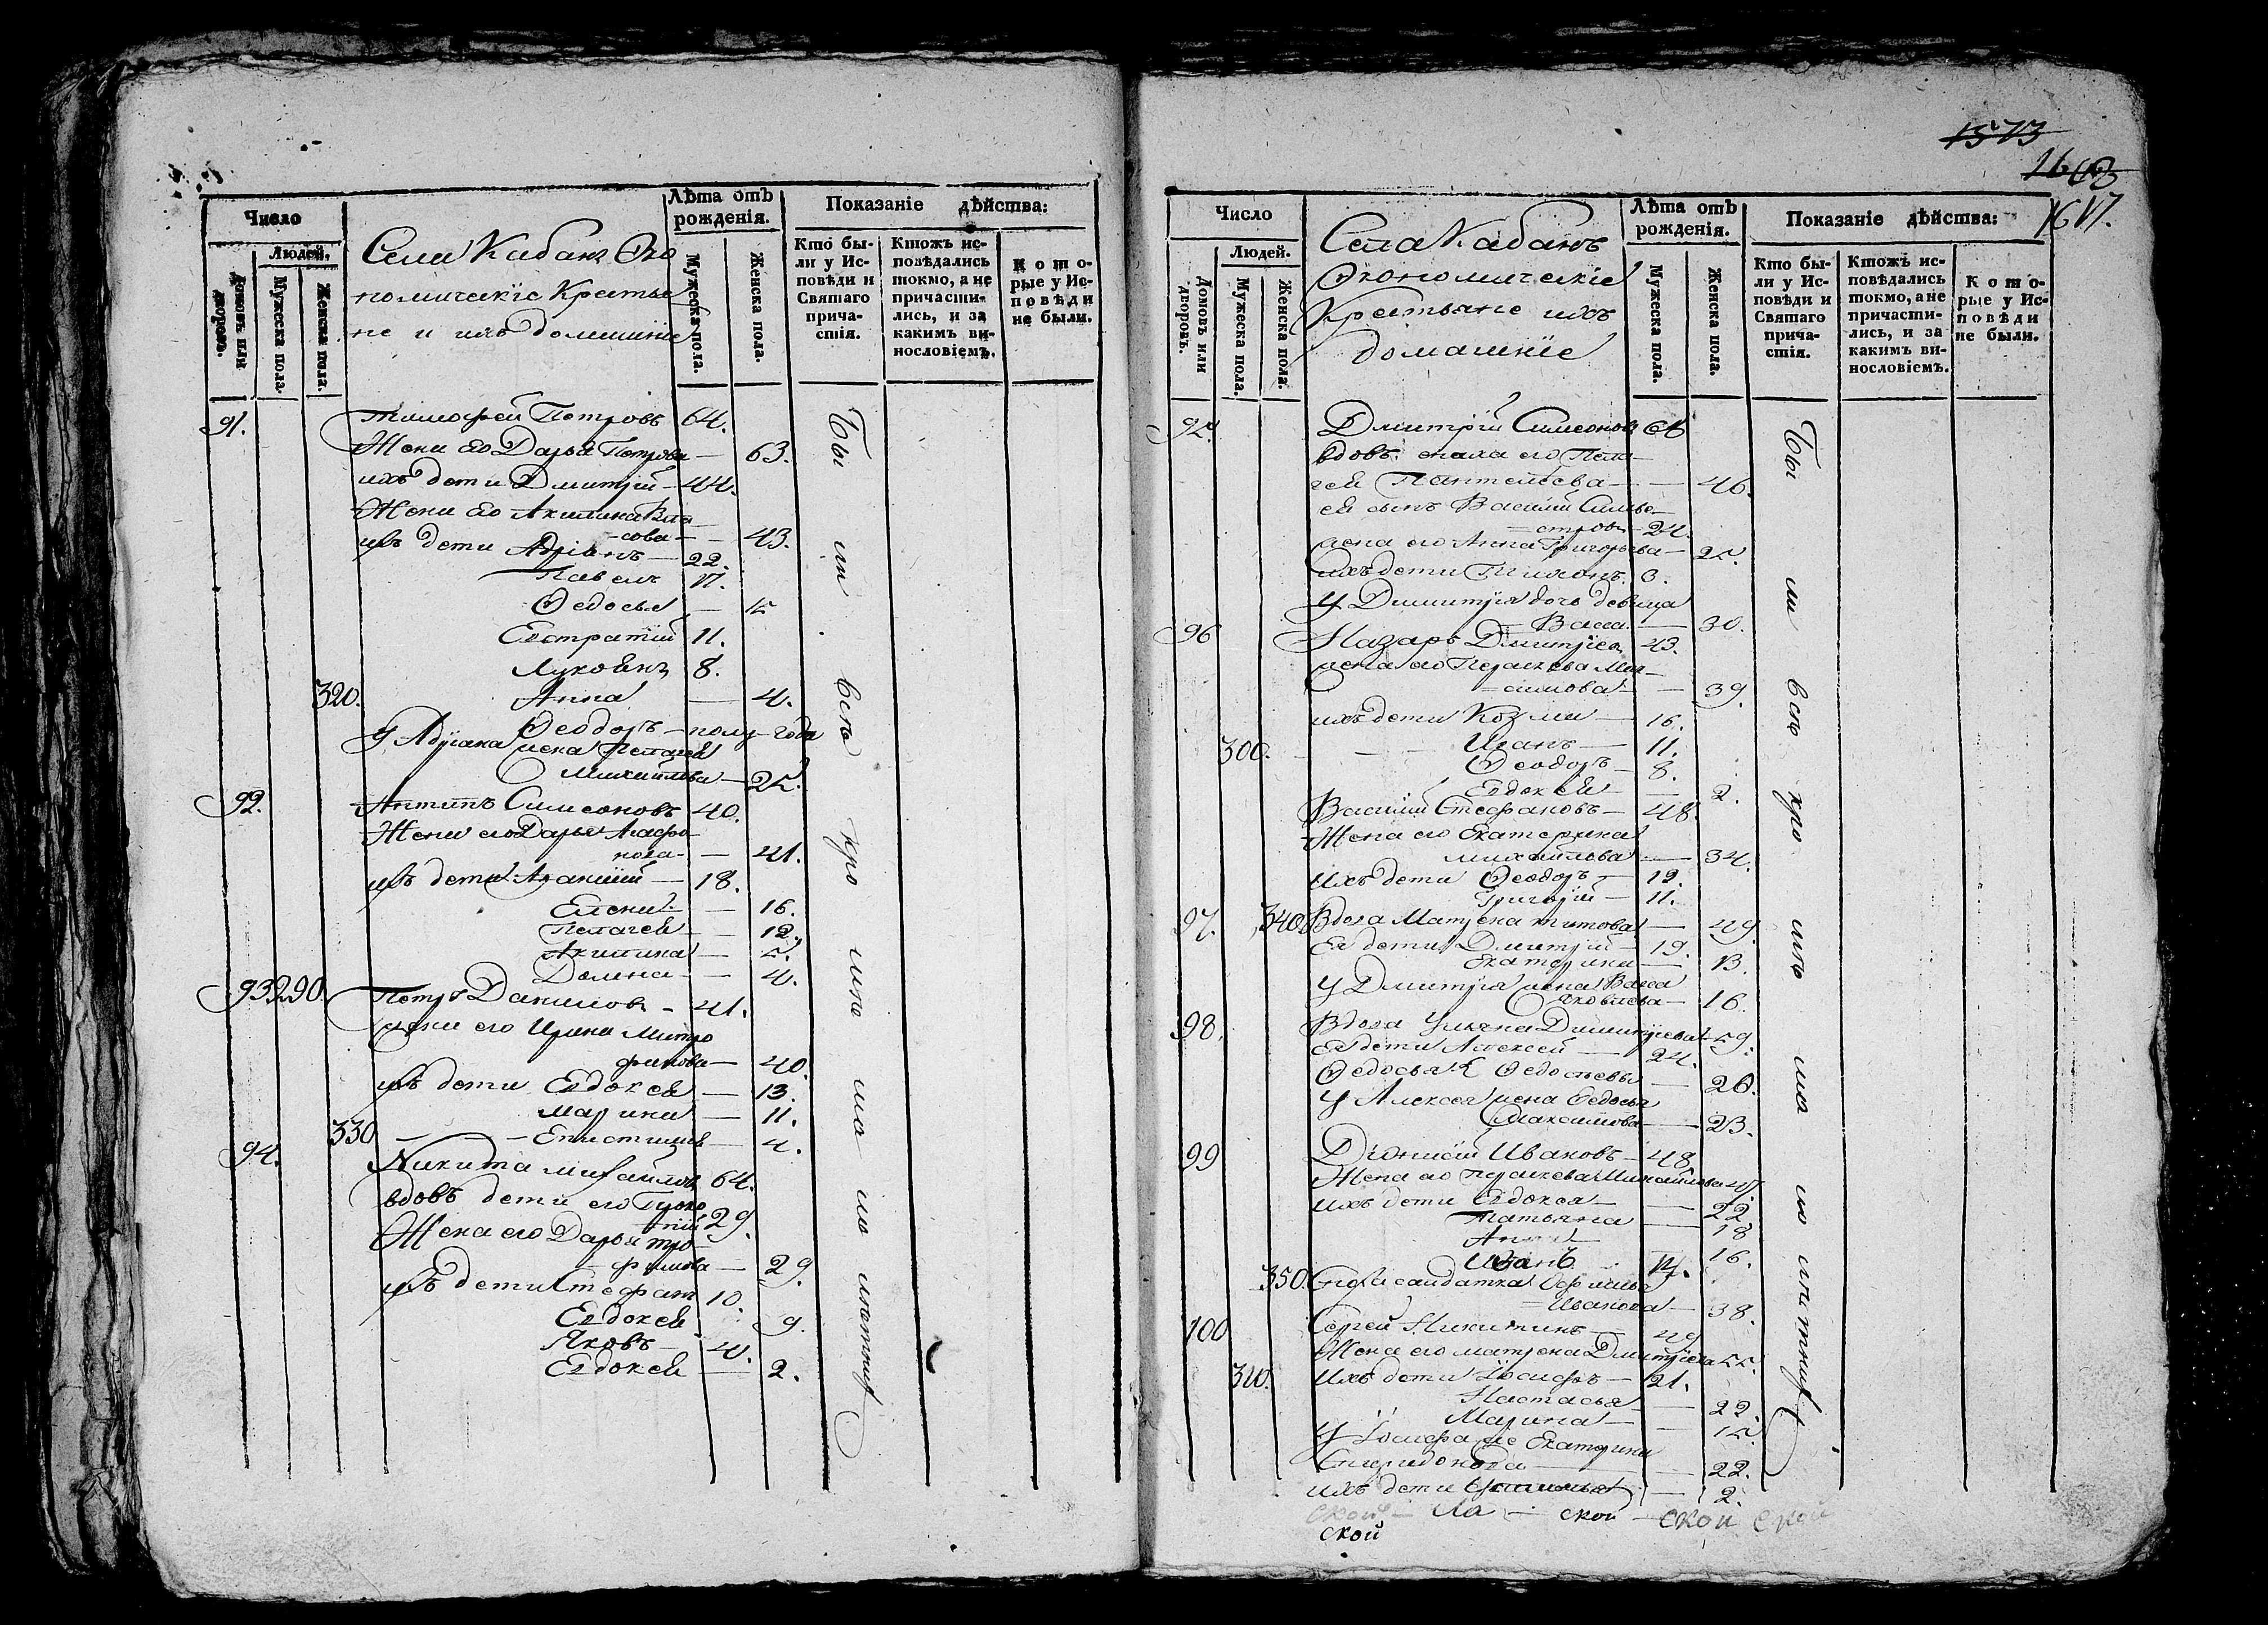 Число
Людей.
Домовъ или дворовъ.
Мужеска пола.
Женска пола.
Села Кабанъ Эко
номическіе Крестья
не и ихъ домашніе
Лѣта отъ рожденія.
Мужеска пола.
Женска пола.
Показаніе дѣйства:
Кто бы-
ли у Ис-
повѣди и
Святаго
прича-
стія.
Ктожъ ис-
повѣдались
токмо, а не
причасти-
лись, и за
какимъ ви-
нословіемъ.
Кото-
рые у Ис-
повѣди
не были.
91. Тимофей Петровъ 64.
Жена его Дарья Петрова — 63.
ихъ дети Дмитрій — 44.
Жена его Акилина Вла
сова — 43.
ихъ дети Адріанъ — 22.
Павелъ 17.
Ѳедосья — 15
Евстратій 11.
Луковнъ 8.
320. Анна — 4.
Ѳеодоръ — полу-года
У Адріана жена Пелагея
Михаилова — 25.
92. Антипъ Симеоновъ 40.
Жена его Дарья Агафо
нова — 41.
ихъ дети Афанасій — 18.
Елена — 16.
Пелагея — 12.
Акилина — 5.
Домна — 4.
93 290. Петръ Даниловъ — 41.
жена его Ирина Митро
фанова — 40.
ихъ дети Евдокея — 13.
Марина — 11.
330 — Епистимія — 4.
94. Никита Михаиловъ 64.
вдовъ дети его
29.
Жена его Дарья Тро
фимова — 29.
ихъ дети Стефанъ 10.
Евдокея 9.
Яковъ — 4.
Евдокея — 2.
Бы ли всѣ
1573
1617.
Число
Людей.
Домовъ или дворовъ.
Мужеска пола.
Женска пола.
Села Кабанъ
Экономическіе
Крестьяне ихъ
домашніе
Лѣта отъ рожденія.
Мужеска пола.
Женска пола.
Показаніе дѣйства:
Кто бы-
ли у Ис-
повѣди и
Святаго
прича-
стія.
Ктожъ ис-
повѣдались
токмо, а не
причасти-
лись, и за
какимъ ви-
нословіемъ.
Кото-
рые у Ис-
повѣди
не были.
95. Дмитрій Симеоновъ
вдовъ снаха его Пела
гея Пантелеева — 46.
ея сынъ Василій Сильве
стровъ — 24.
жена его Анна Григорьева — 25.
ихъ дети Тихонъ 3.
У Димитрія дочь девица
Васса — 30.
96 Назаръ Дмитріевъ 43.
жена его Пераскева Мак
симова — 39.
ихъ дети Козма — 16.
300. — Иванъ — 11.
Ѳеодоръ — 8.
Евдокея — 2.
Василій Стефановъ — 48.
Жена его Екатерина
Михаилова — 34.
Ихъ дети Ѳеодоръ — 12.
Григорій — 11.
97. 340. Вдова Матрена Титова — 49.
Ея дети Дмитрій — 19.
Екатерина — 13.
У Дмитрія жена Васса
Яковлева — 16.
98. Вдова Ульяна Димитріева 59.
Ея дети Алексей — 24.
Ѳедосья Ѳедосьевы — 20.
У Алексея жена Ѳедосья
Максимова — 23.
99 Діонисій Ивановъ — 48
Жена его Пераскева Михайлова 47.
ихъ дети Евдокея — 22
Татьяна — 18
Анна — 16.
Иванъ 14.
350. салдатка
Иванова — 38.
100 Сергей Никитинъ — 49
Жена его Матрена Дмитріева 55.
310. Ихъ дети Іосифъ — 21.
Настасья — 22.
Марина — 15.
У Іосифа же Екатерина
Спиридонова — 22.
ихъ дети — 2.
Бы ли всѣ
ской — ла — ской — ской ской
ской